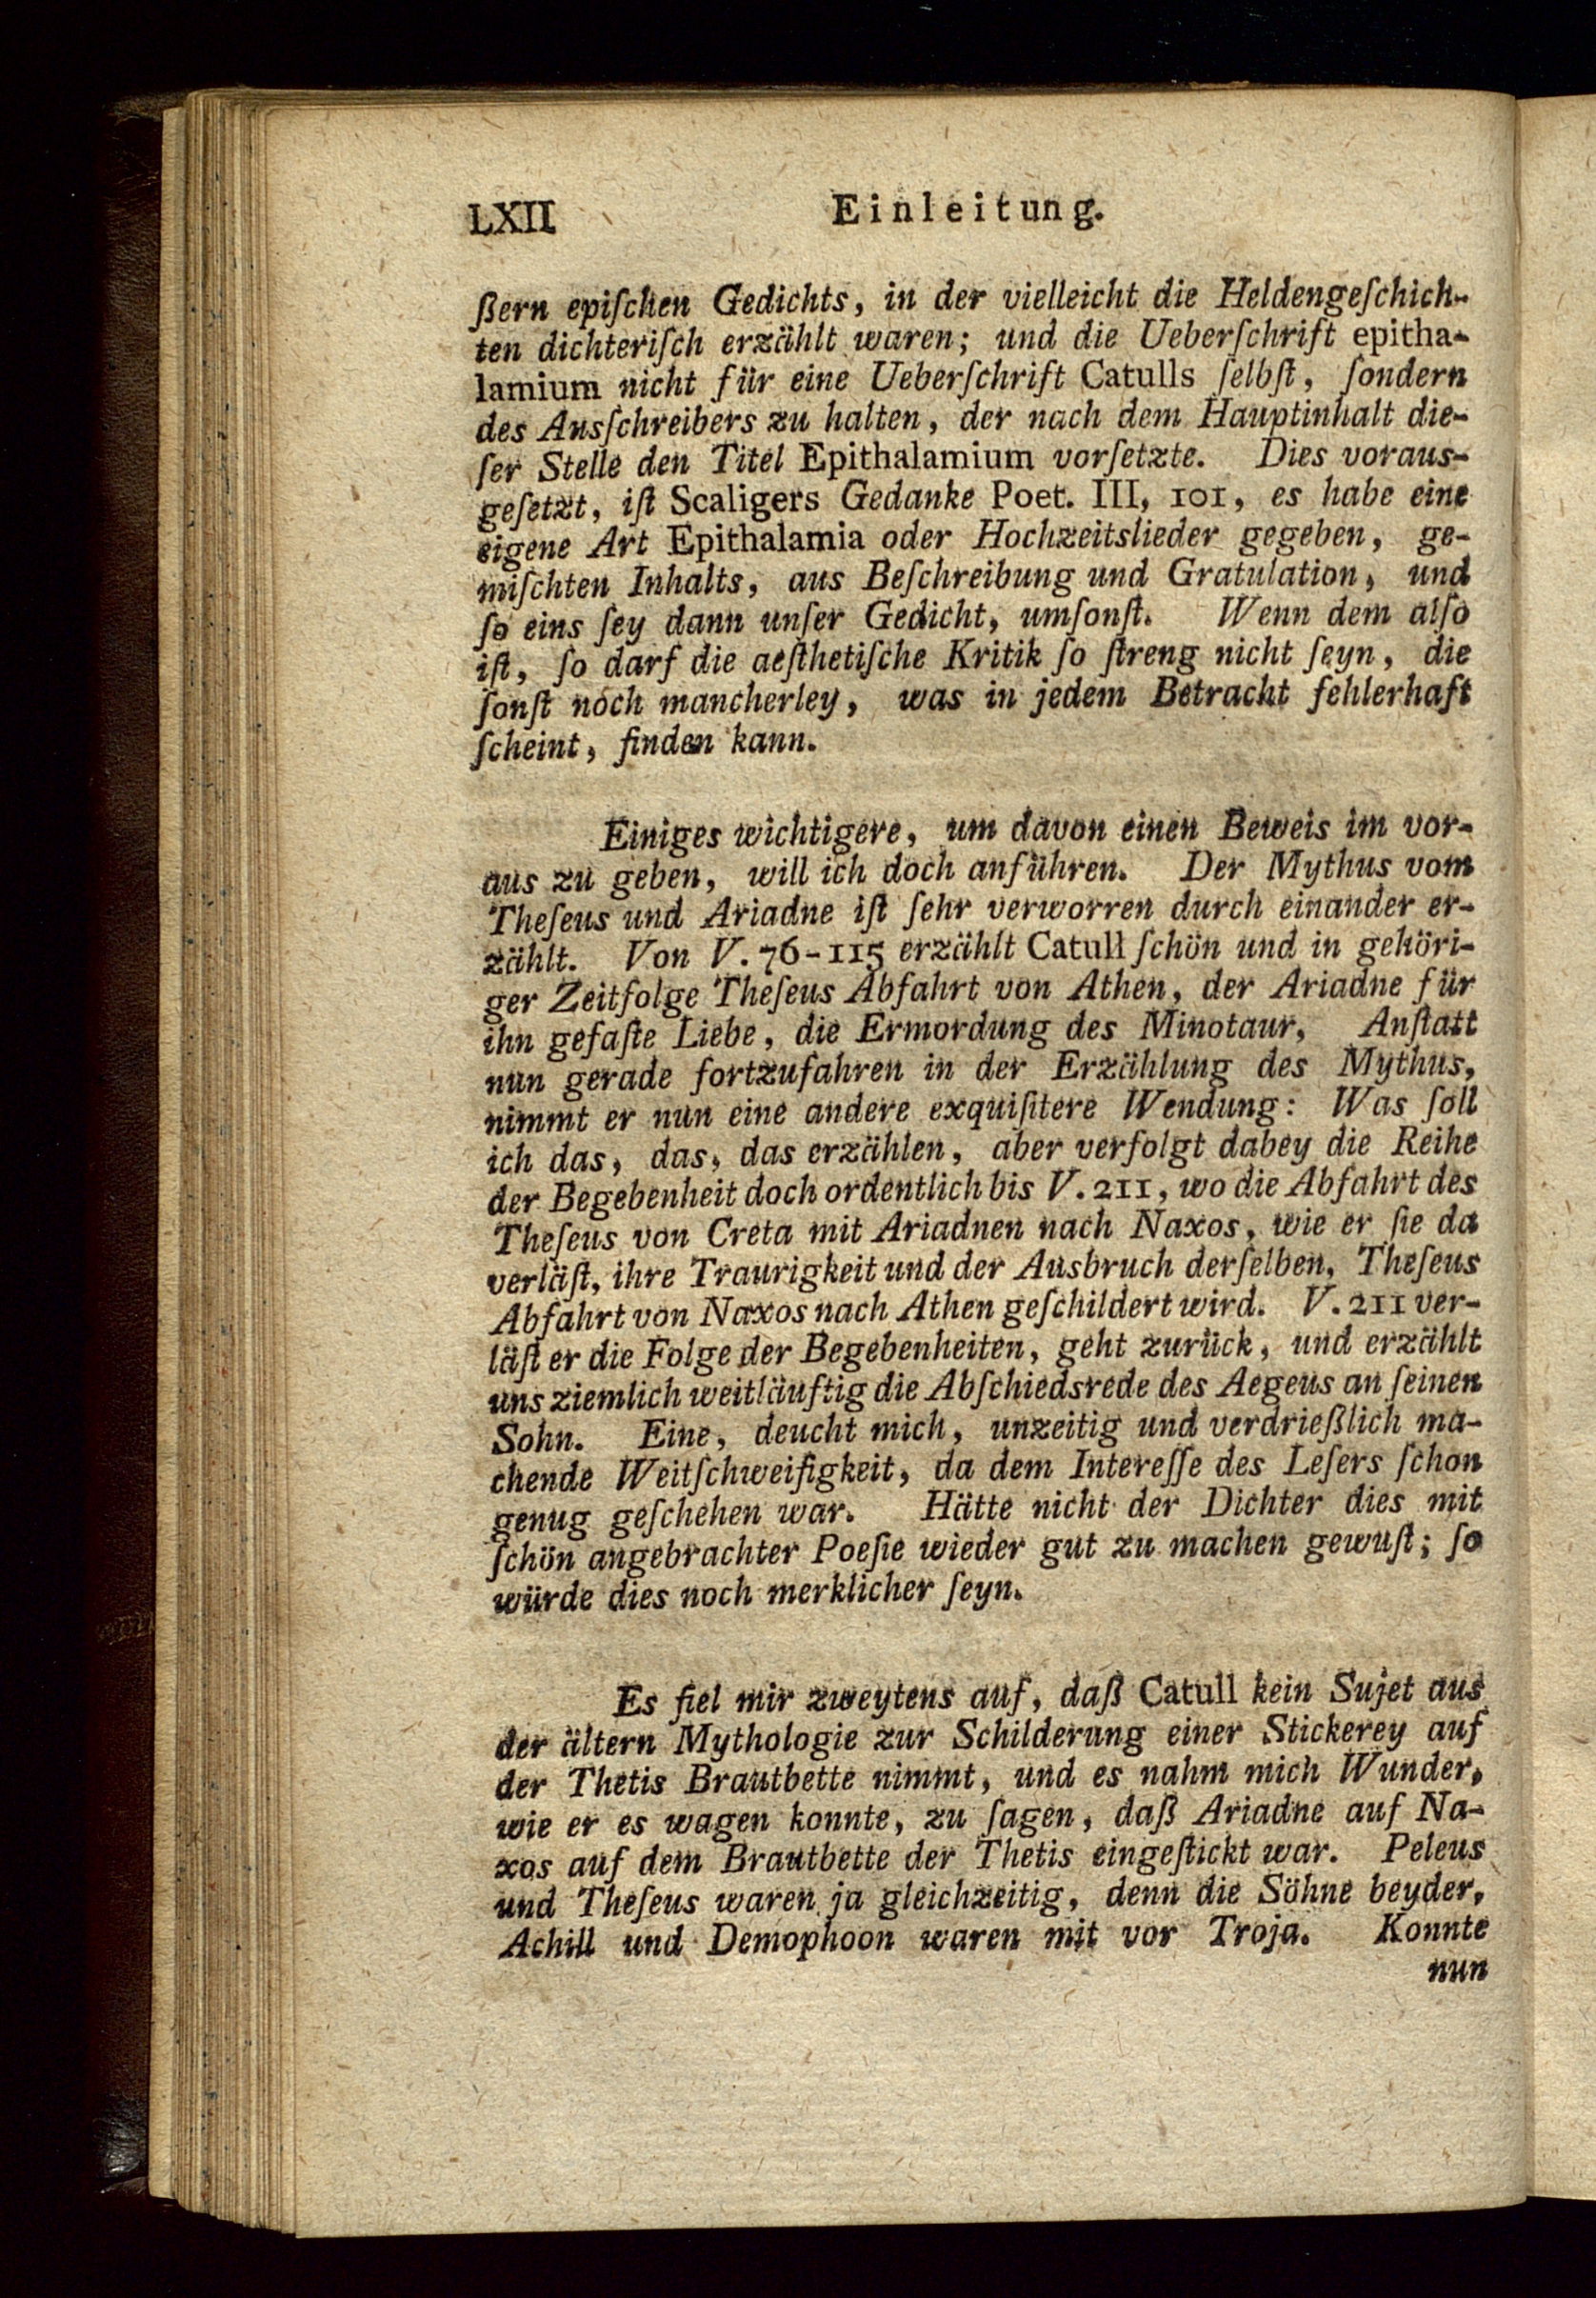 LXII Einleitung.
ßern epiſchen Gedichts, in der vielleicht die Heldengeſchich-
ten dichteriſch erzählt waren; und die Ueberſchrift epitha-
lamium nicht für eine Ueberſchrift Catulls ſelbſt, ſondern
des Ausſchreibers zu halten, der nach dem Hauptinhalt die-
ſer Stelle den Titel Epithalamium vorſetzte. Dies voraus-
geſetzt, iſt Scaligers Gedanke Poet. III, 101, es habe eine
eigene Art Epithalamia oder Hochzeitslieder gegeben, ge-
miſchten Inhalts, aus Beſchreibung und Gratulation, und
ſo eins ſey dann unſer Gedicht, umſonſt. Wenn dem alſo
iſt, ſo darf die aeſthetiſche Kritik ſo ſtreng nicht ſeyn, die
ſonſt noch mancherley, was in jedem Betracht fehlerhaft
ſcheint, finden kann.
Einiges wichtigere, um davon einen Beweis im vor-
aus zu geben, will ich doch anführen. Der Mythus vom
Theſeus und Ariadne iſt ſehr verworren durch einander er-
zählt. Von V. 76-115 erzählt Catull ſchön und in gehöri-
ger Zeitfolge Theſeus Abfahrt von Athen, der Ariadne für
ihn gefaſte Liebe, die Ermordung des Minotaur, Anſtatt
nun gerade fortzufahren in der Erzählung des Mythus,
nimmt er nun eine andere exquiſitere Wendung: Was ſoll
ich das, das, das erzählen, aber verfolgt dabey die Reihe
der Begebenheit doch ordentlich bis V. 211, wo die Abfahrt des
Theſeus von Creta mit Ariadnen nach Naxos, wie er ſie da
verläſt, ihre Traurigkeit und der Ausbruch derſelben, Theſeus
Abfahrt von Naxos nach Athen geſchildert wird. V. 211 ver-
läſt er die Folge der Begebenheiten, geht zurück, und erzählt
uns ziemlich weitläuftig die Abſchiedsrede des Aegeus an ſeinen
Sohn. Eine, deucht mich, unzeitig und verdrießlich ma-
chende Weitſchweifigkeit, da dem Intereſſe des Leſers ſchon
genug geſchehen war. Hätte nicht der Dichter dies mit
ſchön angebrachter Poeſie wieder gut zu machen gewuſt; ſo
würde dies noch merklicher ſeyn.
Es fiel mir zweytens auf, daß Catull kein Sujet aus
der ältern Mythologie zur Schilderung einer Stickerey auf
der Thetis Brautbette nimmt, und es nahm mich Wunder,
wie er es wagen konnte, zu ſagen, daß Ariadne auf Na-
xos auf dem Brautbette der Thetis eingeſtickt war. Peleus
und Theſeus waren ja gleichzeitig, denn die Söhne beyder,
Achill und Demophoon waren mit vor Troja. Konnte
nun